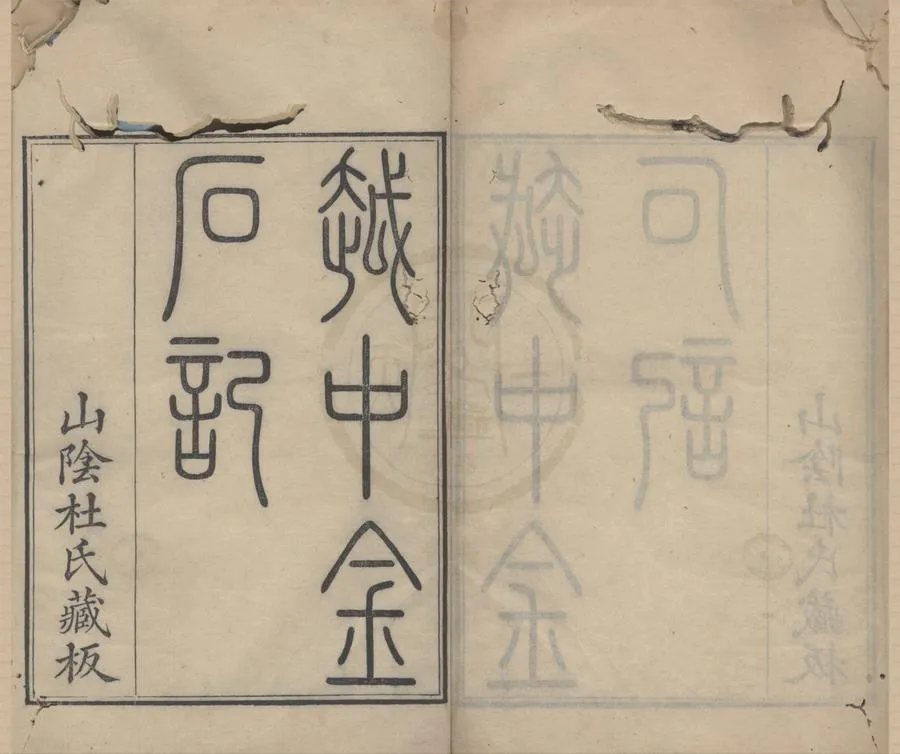 越中金
石記
山陰杜氏藏板